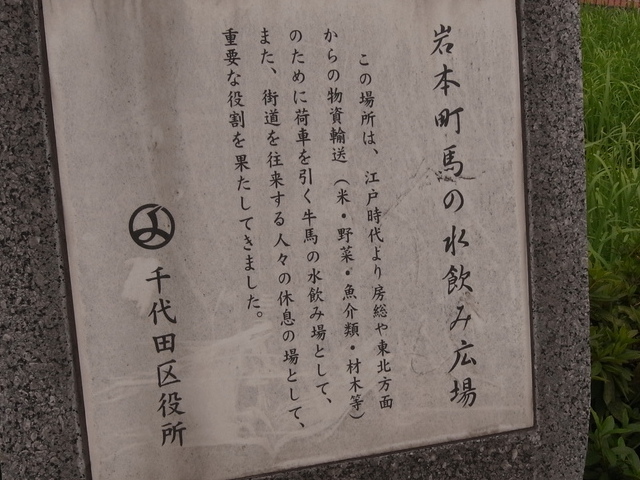 岩本町馬の水飲み広場
この場所は、江戸時代より房総や東北方面
からの物資輸送（米・野菜・魚介類・材木等）
のために荷車を引く牛馬の水飲み場として、
また、街道を往来する人々の休息の場として、
重要な役割を果たしてきました。
千代田区役所